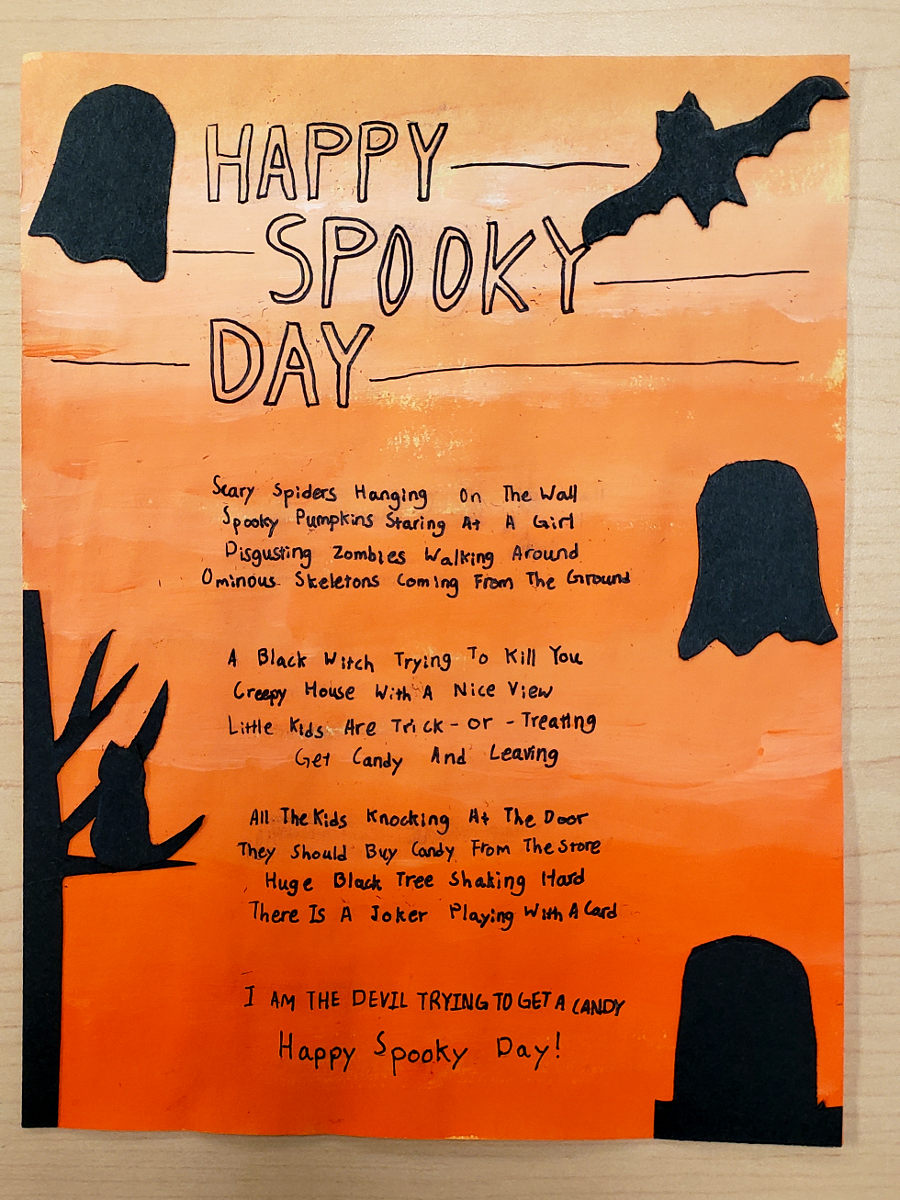 HAPPY
SPOOKY
DAY
Scary Spiders Hanging On The Wall
Spooky Pumpkins Staring At A Girl
Disgusting Zombies Walking Around
Ominous Skeletons Coming From The Ground
A Black Witch Trying To Kill You
Creepy House With A Nice View
Little Kids Are Trick-or-Treating
Get Candy And Leaving
All The Kids Knocking At The Door
They Should Buy Candy From The Store
Huge Black Tree Shaking Hard
There Is A Joker Playing With A Card
I AM THE DEVIL TRYING TO GET A CANDY
Happy Spooky Day!